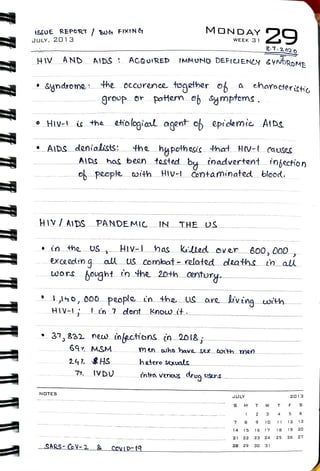 ISSUE REPORT / BUG FIXING
JULY, 2013
MONDAY 29
WEEK 31
8.7.2020
HIV AND AIDS : ACQUIRED IMMUNO DEFICIENCY SYNDROME
• Syndrome: the occurence together of a characteristic
group or pattern of symptoms.
• HIV-1 is the etiological agent of epidemic AIDS
• AIDS denialists: the hypothesis that HIV-1 causes
AIDS has been tested by inadvertent infection
of people with HIV-1 contaminated blood.
HIV / AIDS PANDEMIC IN THE US
• in the US, HIV-1 has killed over 600,000,
exceeding all US combat-related deaths in all
wars fought in the 20th century.
• 1,140,000 people in the US are living with
HIV-1; 1 in 7 dont know it.
• 37,832 new infections in 2018;
69% MSM men who have sex with men
24% HS hetero sexuals
7% IVDU intra venous drug users
NOTES
SARS-CoV-2 & COVID-19
JULY 2013
S M T W T F S
1 2 3 4 5 6
7 8 9 10 11 12 13
14 15 16 17 18 19 20
21 22 23 24 25 26 27
28 29 30 31